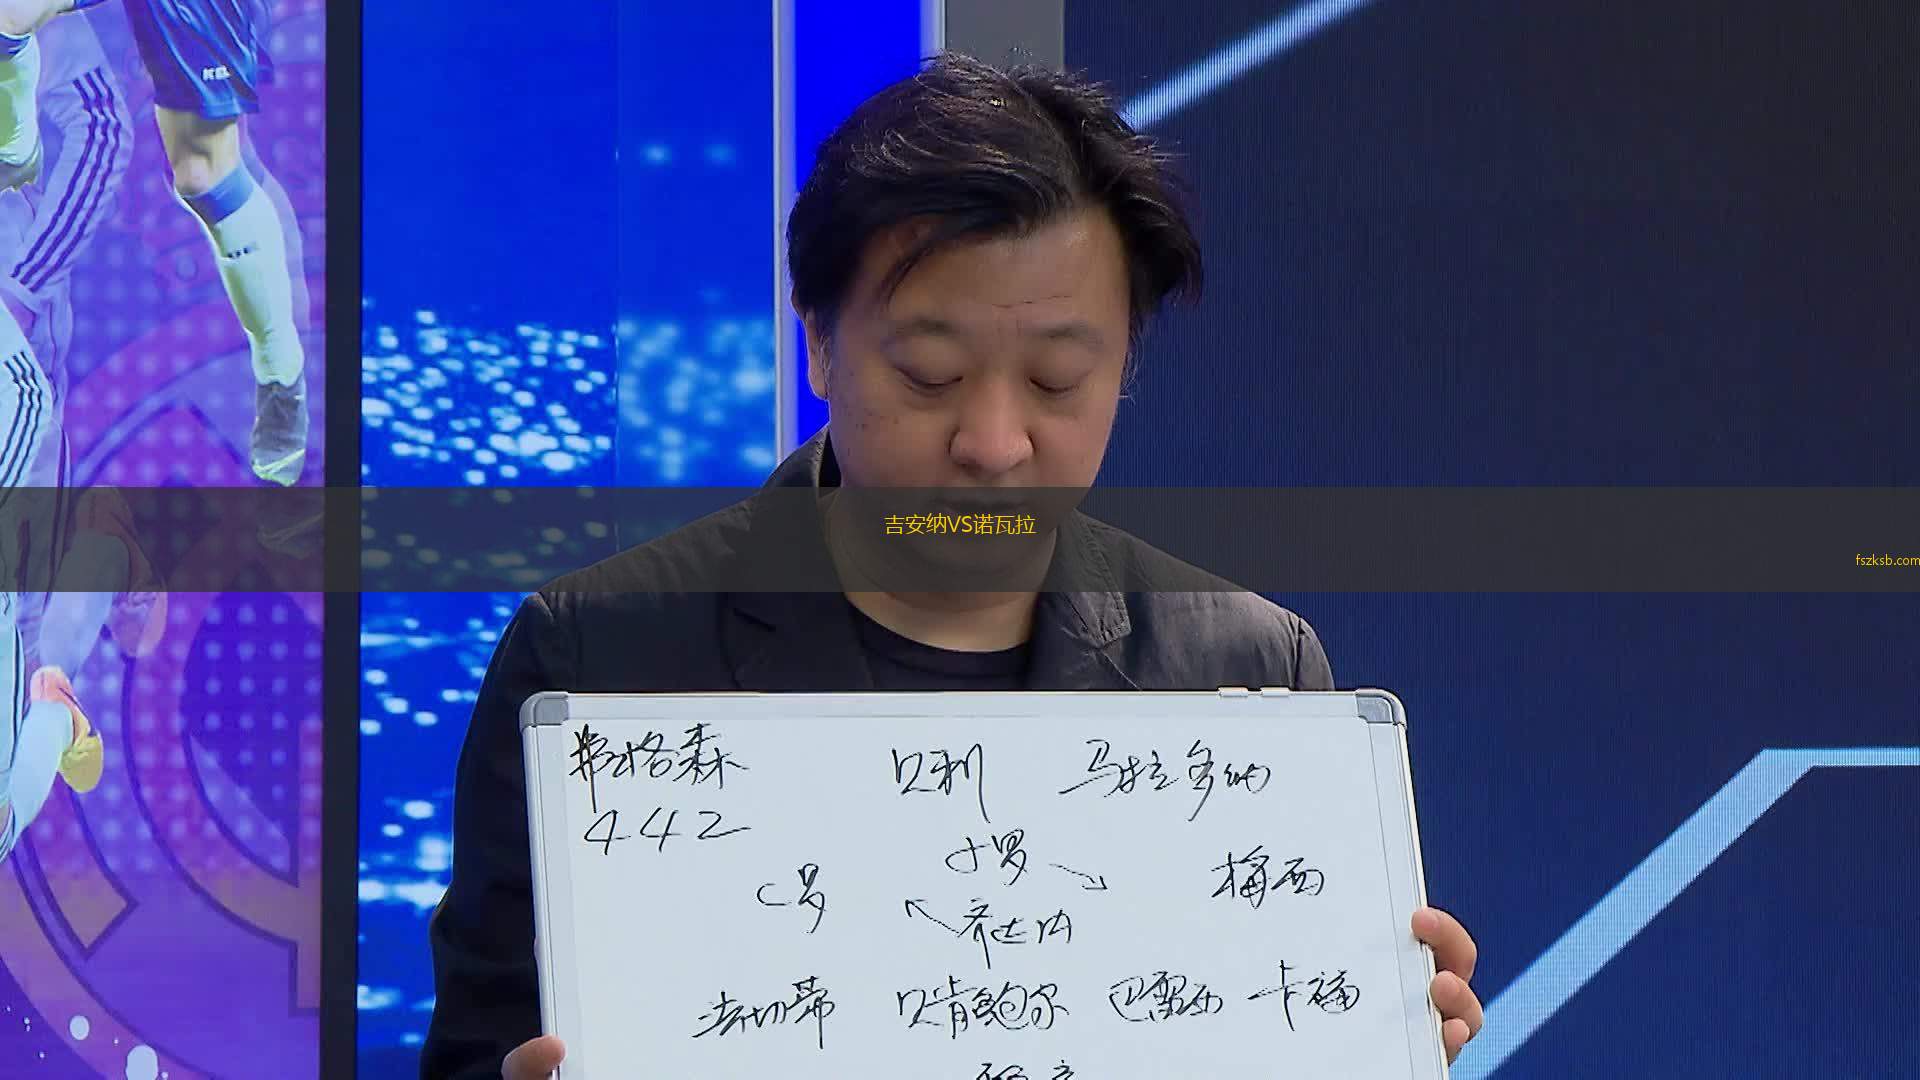 吉安纳VS诺瓦拉
fszksb.com
弗格森 贝利 马拉多纳
442
小罗
C罗 梅西
齐达内
法切蒂 贝肯鲍尔 巴雷西 卡福